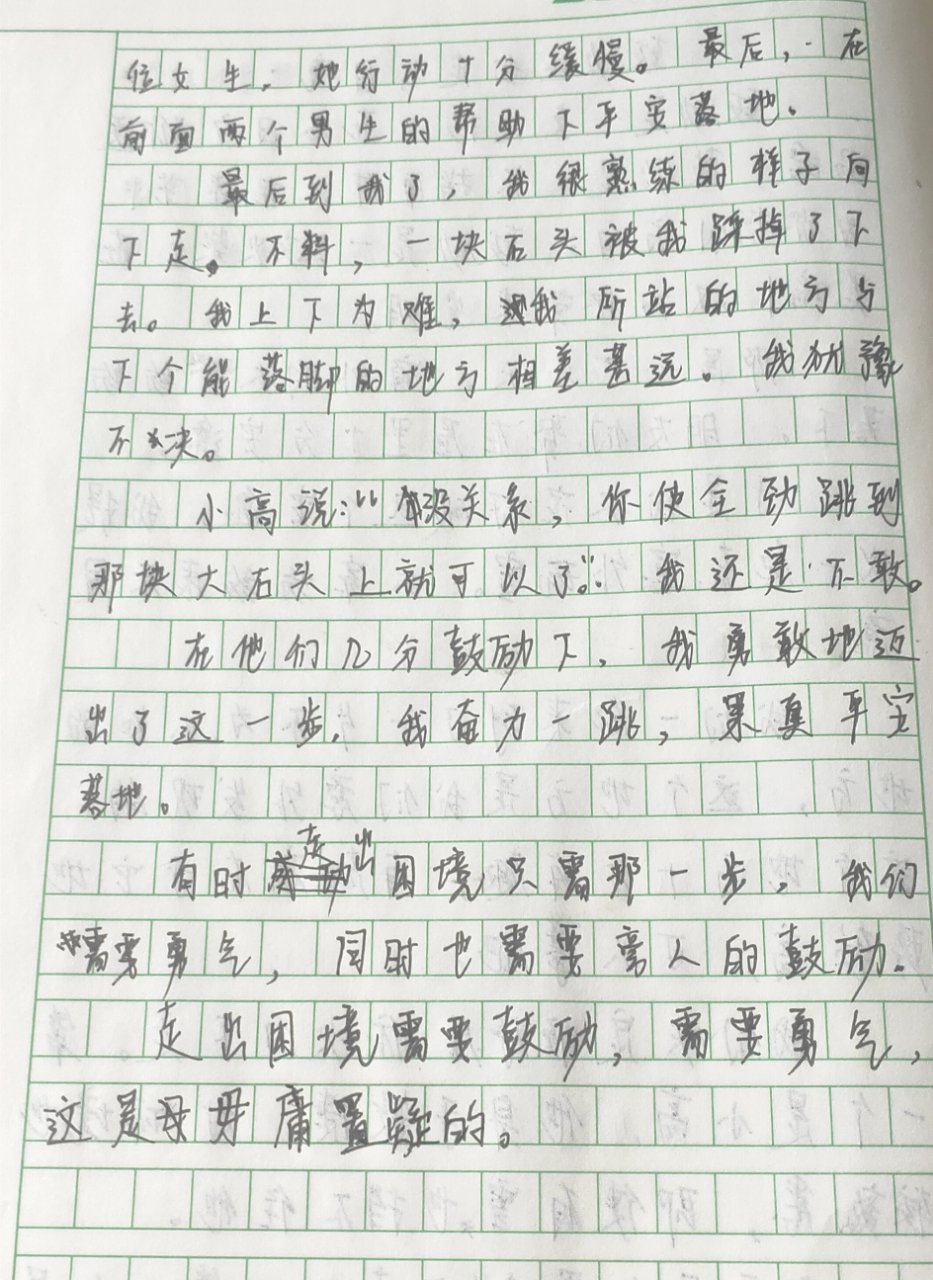 位女生，她行动十分缓慢。最后，在
前面两个男生的帮助下平安落地。
最后到我了，我很熟练的样子向
下走。不料，一块石头被我踩掉了下
去。我上下为难，我所站的地方与
下个能落脚的地方相差甚远。我犹豫
不决。
小高说：“没关系，你使全劲跳到
那块大石头上就可以了。”我还是不敢。
在他们几分鼓励下，我勇敢地迈
出了这一步，我奋力一跳，果真平安
落地。
有时走出困境只需那一步，我们
需要勇气，同时也需要旁人的鼓励。
走出困境需要鼓励，需要勇气，
这是毋庸置疑的。